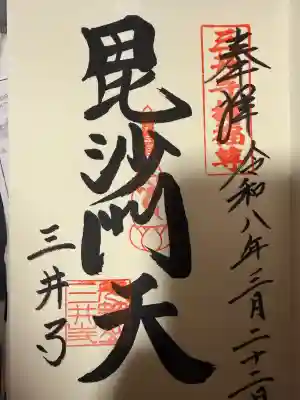 奉拝
令和八年三月二十二日
毘沙門天
三井寺